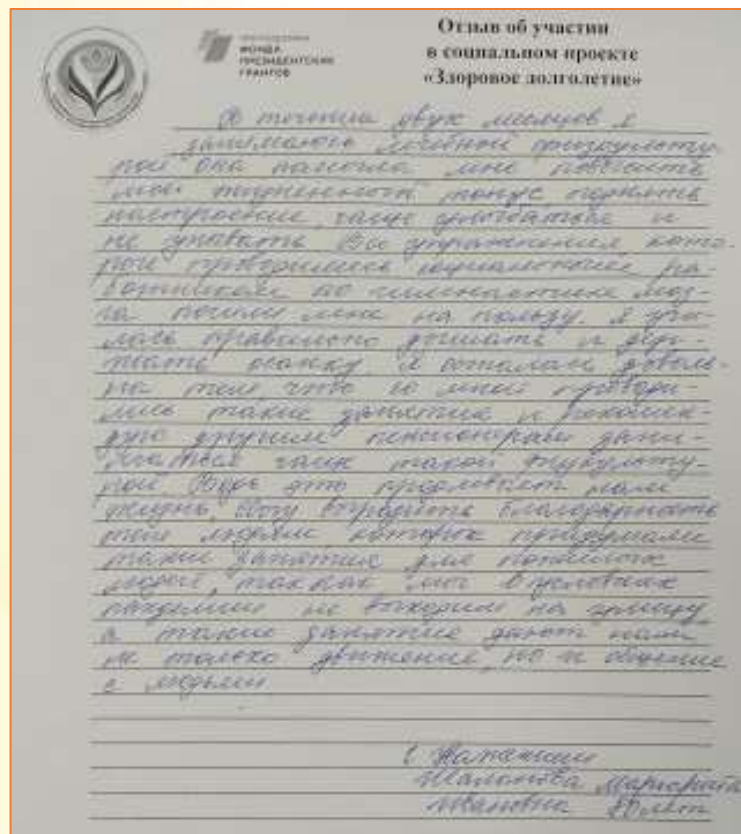 ФОНДА
ПРЕЗИДЕНТСКИХ
ГРАНТОВ
Отзыв об участии
в социальном проекте
«Здоровое долголетие»
В течении двух месяцев я
занимаюсь лечебной физкульту-
рой она помогла мне повысить
мой жизненный тонус, поднять
настроение, чаще улыбаться и
не унывать Все упражнения кото-
рои проводились социальным ра-
ботником по гимнастике моз-
га пошли мне на пользу. Я учи-
лась правильно дышать и дер-
жать осанку. Я осталась доволь-
на тем, что со мной проводи-
лись такие занятия и рекомен-
дую другим пенсионерам зани-
маться чаще такой физкульту-
рой. Ведь это продлевает нам
жизнь. Хочу выразить благодарность
тем людям которые придумали
такие занятия для пожилых
людей, так как мы в условиях
пандемии не выходим на улицу,
а такие занятие дают нам
не только движение, но и общение
с людьми
Маргарита
Ивановна лет